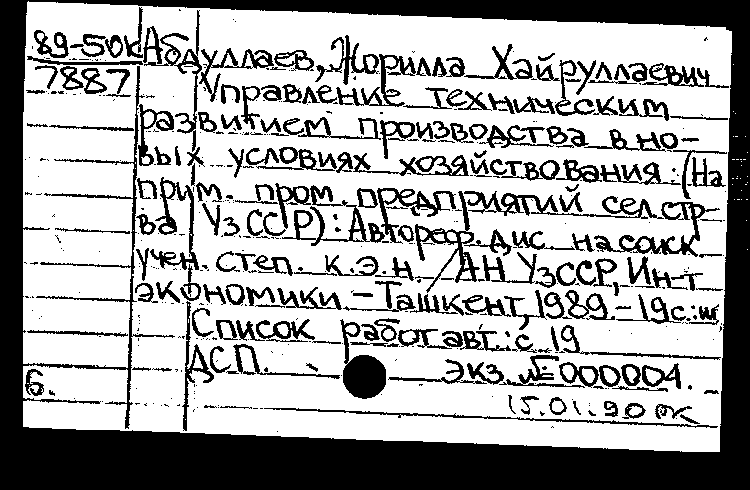 89-50к Абдуллаев, Жорилла Хайруллаевич
7887 Управление техническим
развитием производства в но-
вых условиях хозяйствования: (На
прим. пром. предприятий сел. стр-
ва УзССР): Автореф. дис. на соиск.
учен. степ. к.э.н. / АН УзССР, Ин-т
экономики. – Ташкент, 1989. – 19с.: ил
Список работ авт.: с 19
ДСП. экз. № 000004.
6.
15.01.90